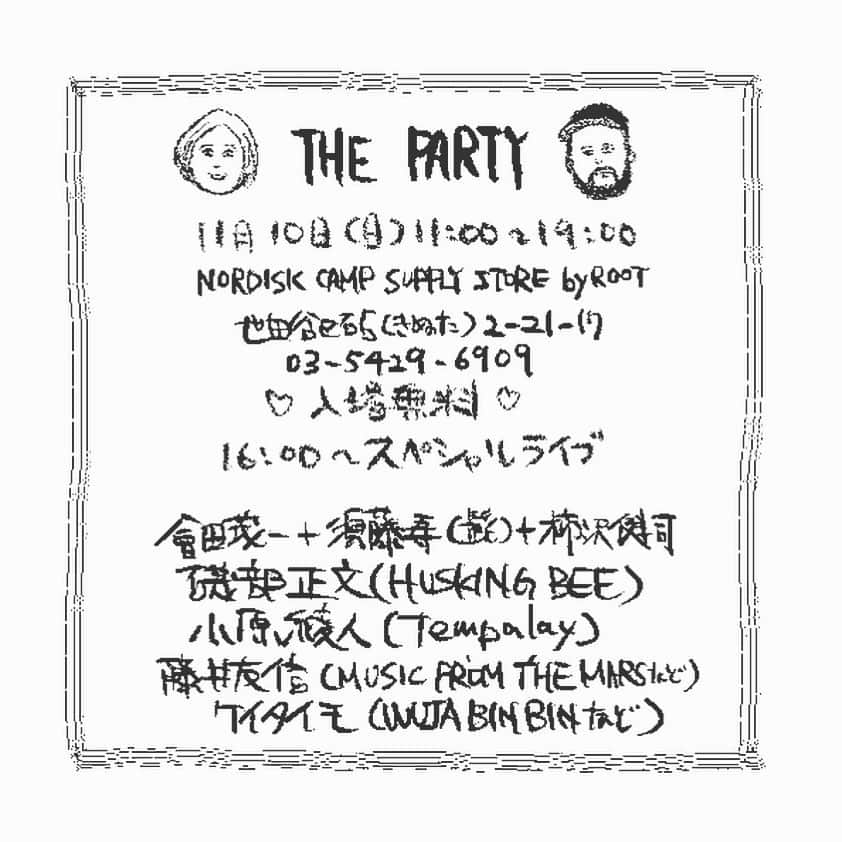 THE PARTY
11月10日(日)11:00~19:00
NORDISK CAMP SUPPLY STORE by ROOT
世田谷区砧(きぬた)2-21-17
03-5429-6909
♡ 入場無料 ♡
16:00~スペシャルライブ
會田茂一+須藤寿(髭)+柿沢健司
磯部正文(HUSKING BEE)
小原綾人(Tempalay)
藤井友信(MUSIC FROM THE MARSなど)
ケイタイモ(WUJA BIN BINなど)